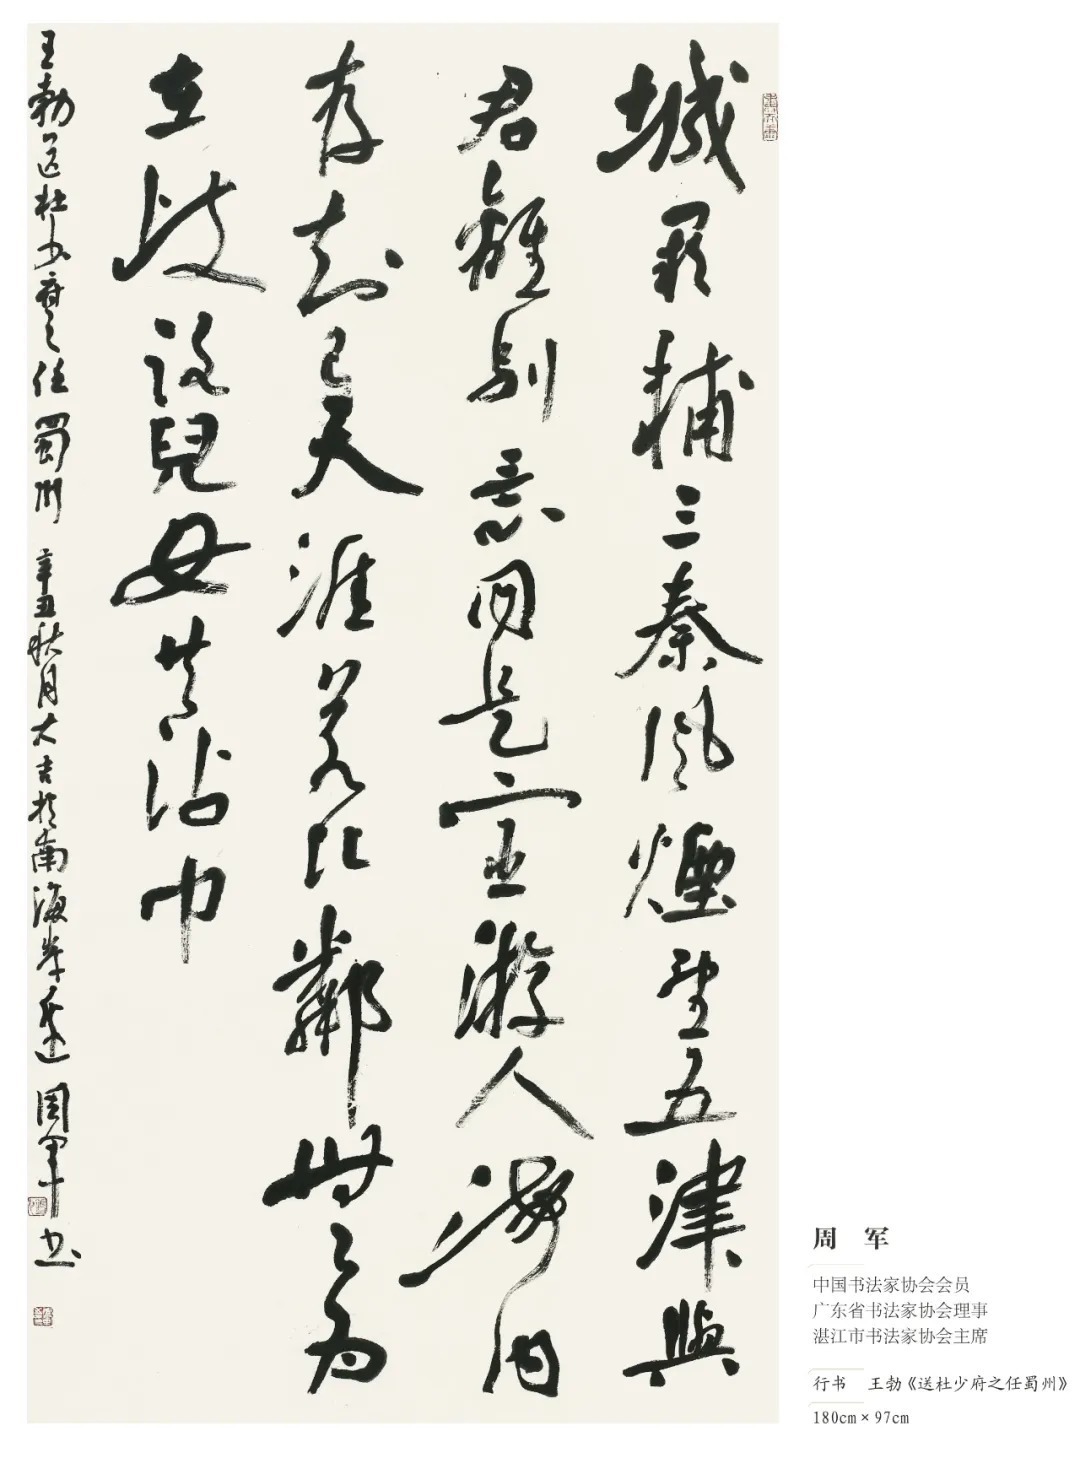 城闕輔三秦風煙望五津與
君離別意同是宦游人海内
存知己天涯若比鄰無为
在歧路兒女共沾巾
王勃送杜少府之任蜀州 辛丑秋月大吉於南海 周軍书
周 军
中国书法家协会会员
广东省书法家协会理事
湛江市书法家协会主席
行书 王勃《送杜少府之任蜀州》
180cm×97cm